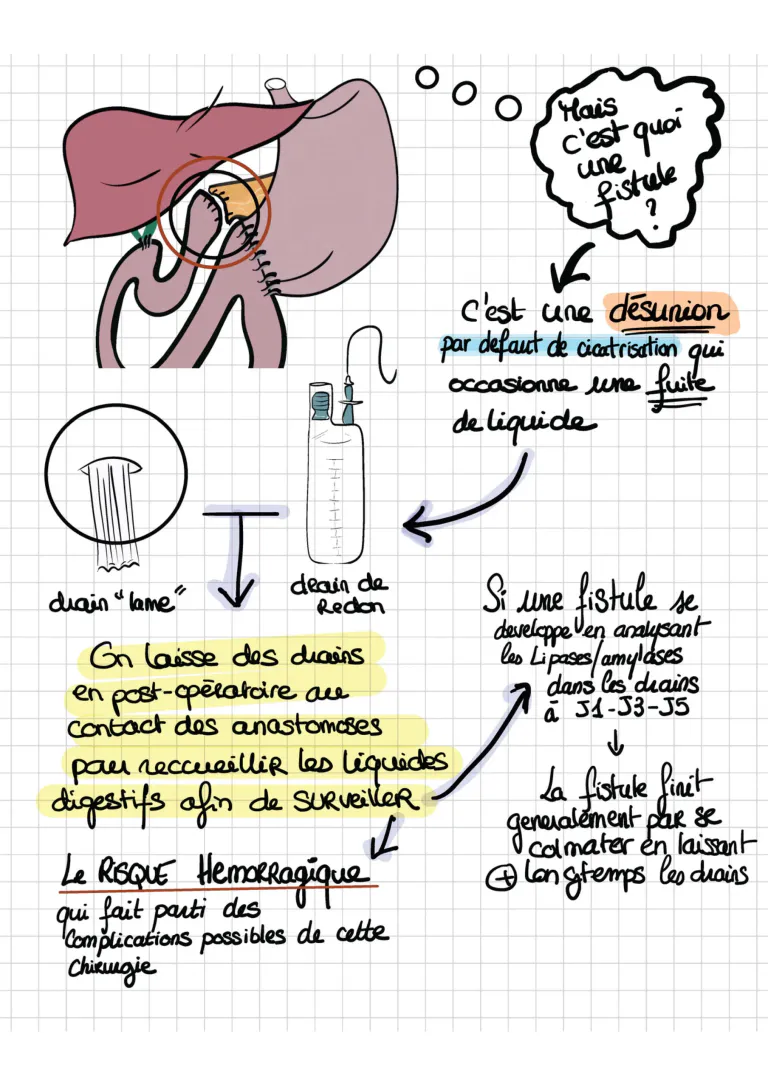 Mais
c'est quoi
une
fistule
?
C'est une désunion
par defaut de cicatrisation qui
occasionne une fuite
de liquide
drain "lame"
drain de
Redon
On laisse des drains
en post-opératoire au
contact des anastomoses
pour reccueillir les liquides
digestifs afin de surveiller
Si une fistule se
developpe en analysant
les Lipases/amylases
dans les drains
à J1-J3-J5
↓
La fistule finit
generalement par se
colmater en laissant
⊕ longtemps les drains
Le RISQUE Hemorragique
qui fait parti des
complications possibles de cette
chirurgie